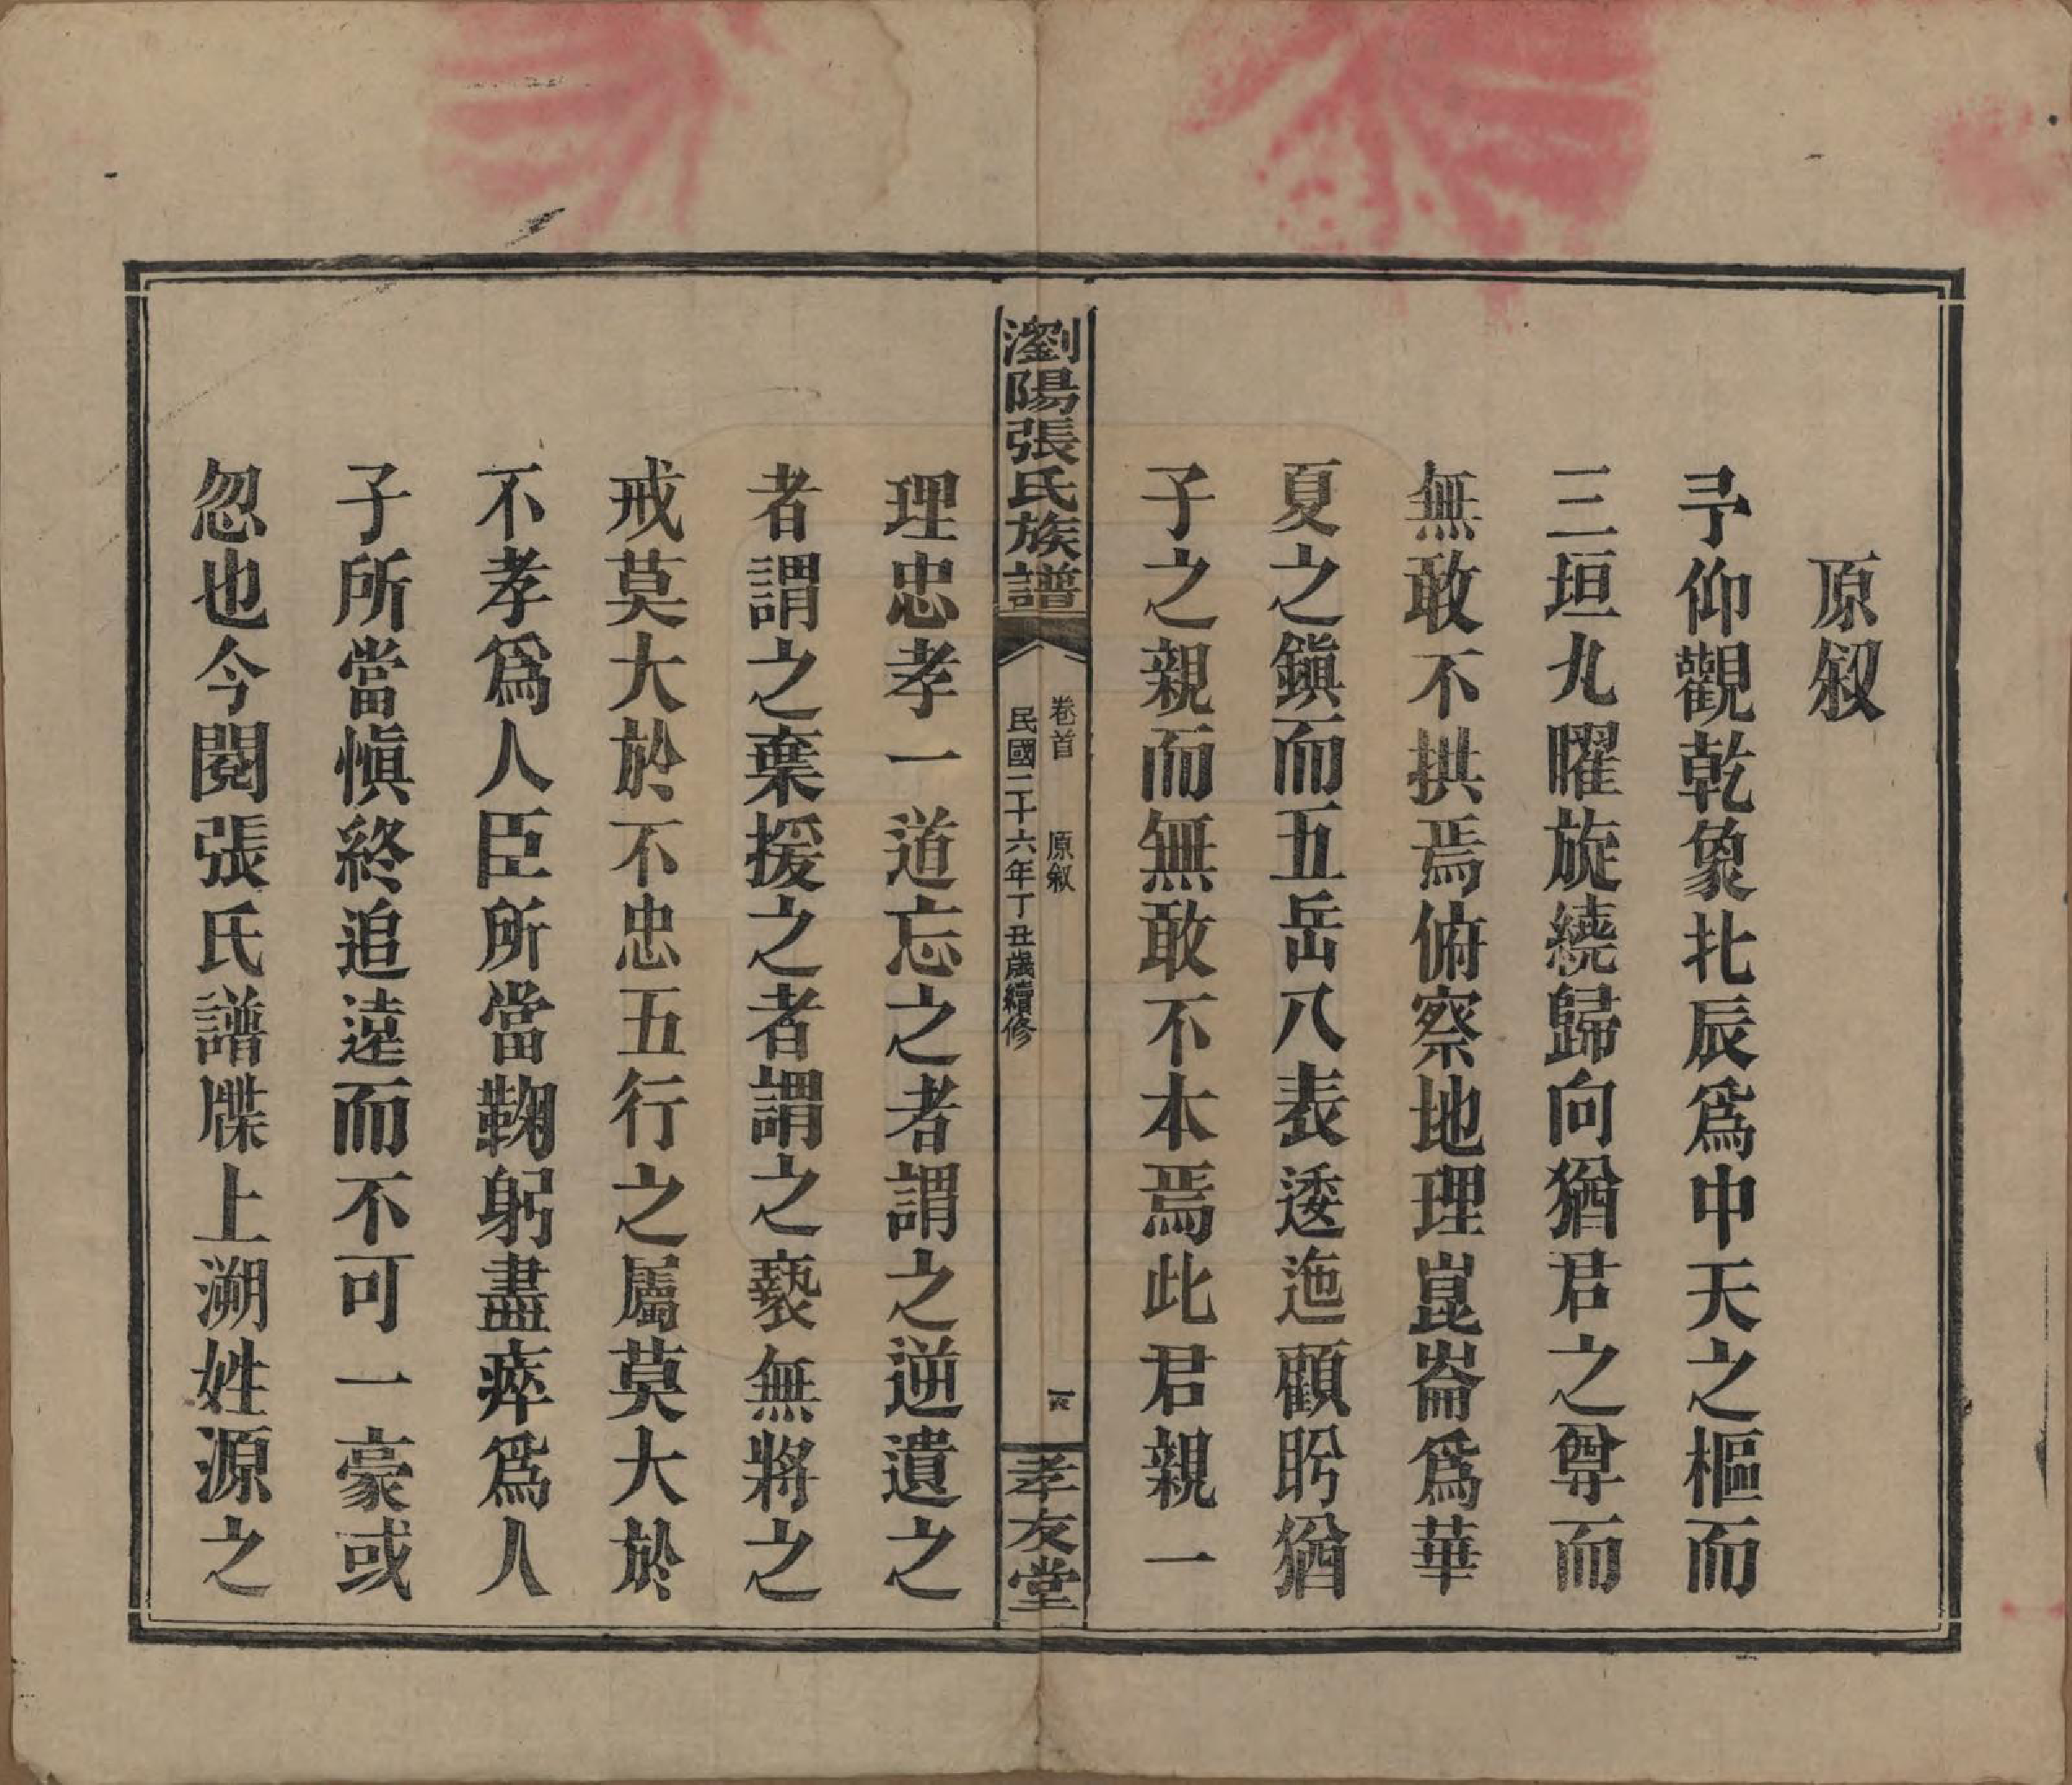 原敘
予仰觀乾象北辰爲中天之樞而
三垣九曜旋繞歸向猶君之尊而
無敢不拱焉俯察地理崑崙爲華
夏之鎭而五岳八表逶迤顧盻猶
子之親而無敢不本焉此君親一
瀏陽張氏族譜
卷首 原敘
民國二十六年丁丑歲續修
孝友堂
理忠孝一道忘之者謂之逆遺之
者謂之棄援之者謂之褻無將之
戒莫大於不忠五行之屬莫大於
不孝爲人臣所當鞠躬盡瘁爲人
子所當愼終追遠而不可一豪或
忽也今閱張氏譜牒上溯姓源之